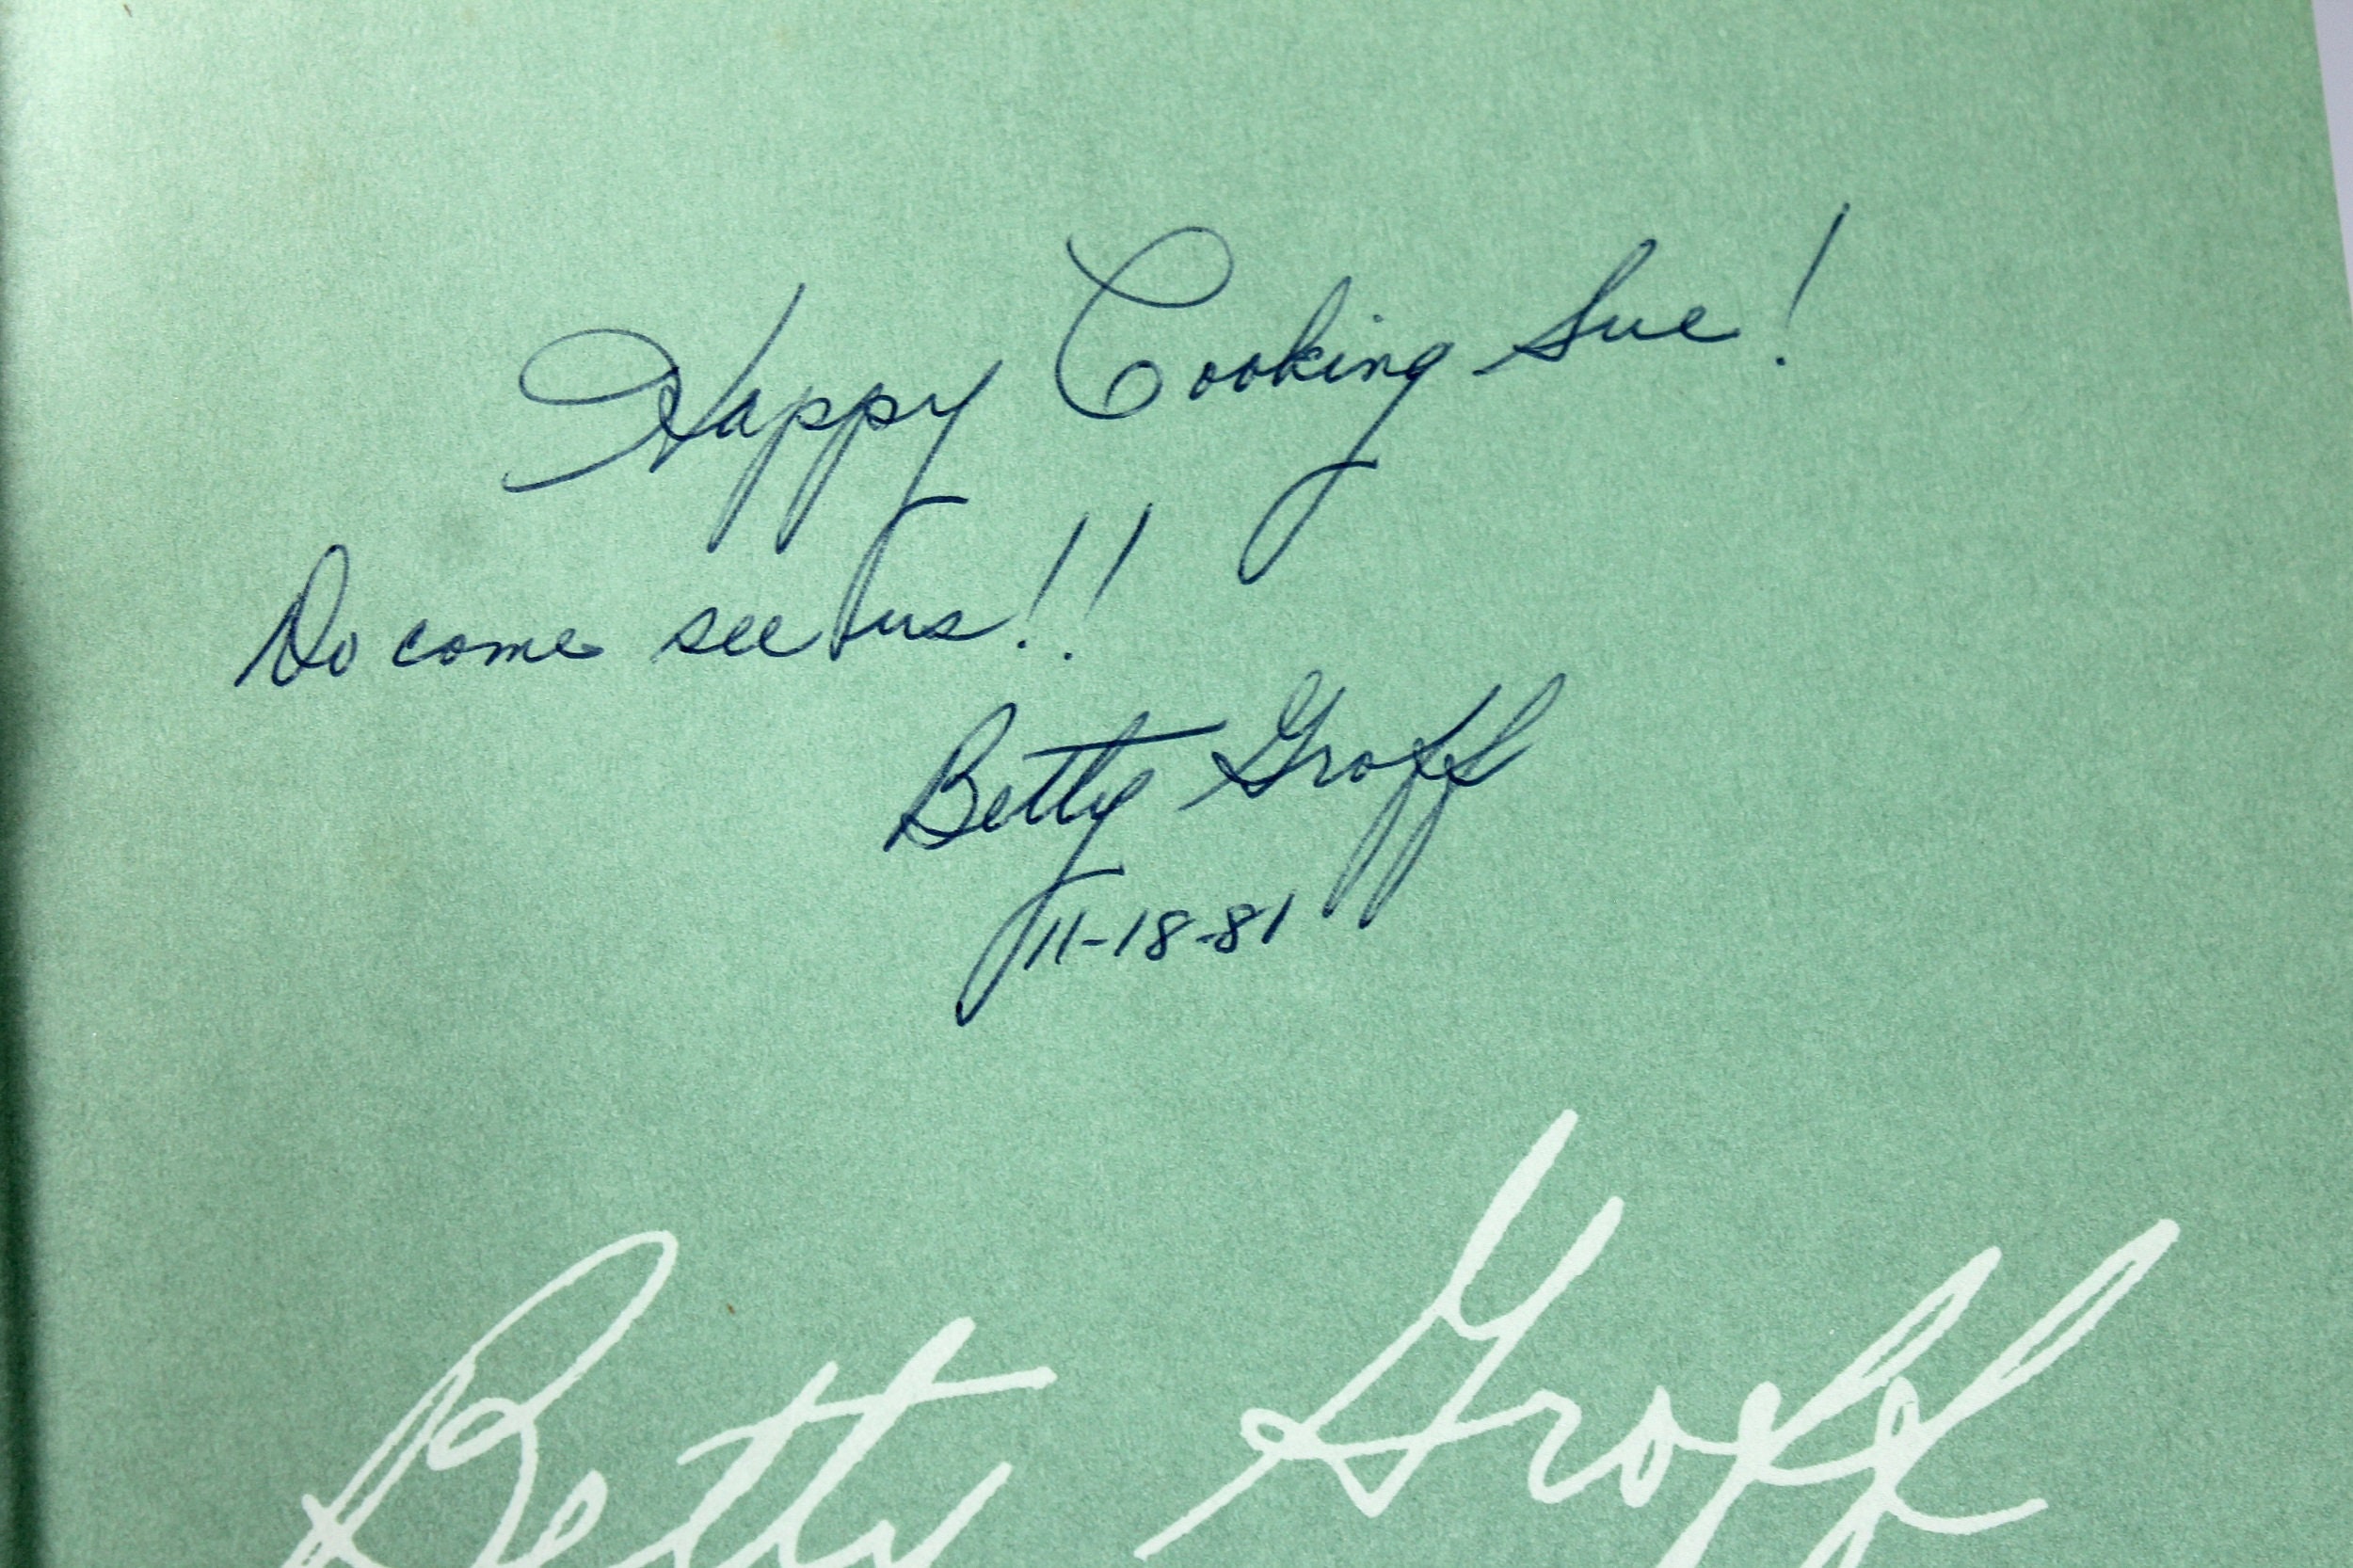 Happy Cooking Sue!
Do come see us!!
Betty Groff
11-18-81
Betty Groff